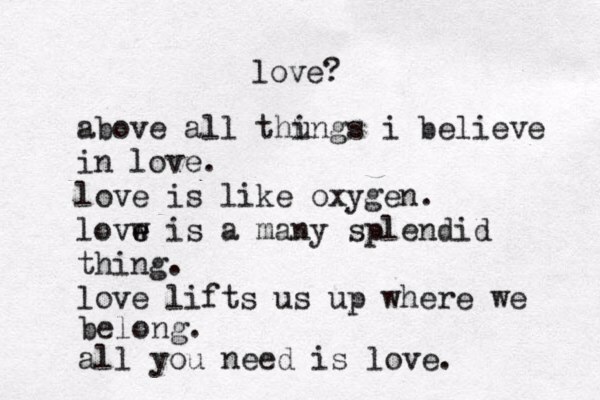 love?
above all things i believe
in love.
love is like oxygen.
love is a many splendid
thing.
love lifts us up where we
belong.
all you need is love.